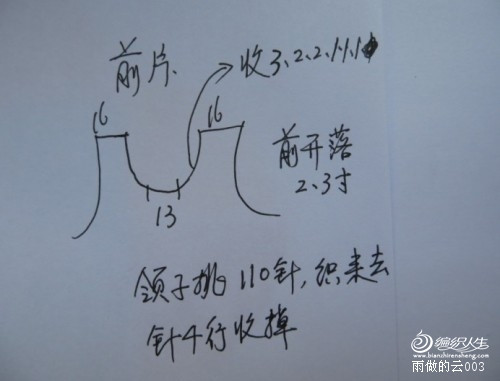 前片
收3、2、2、1、1、1
16
16
13
前开落
2、3寸
领子挑110针，织来去
针4行收掉
编织人生
www.bianzhirensheng.com
雨做的云003